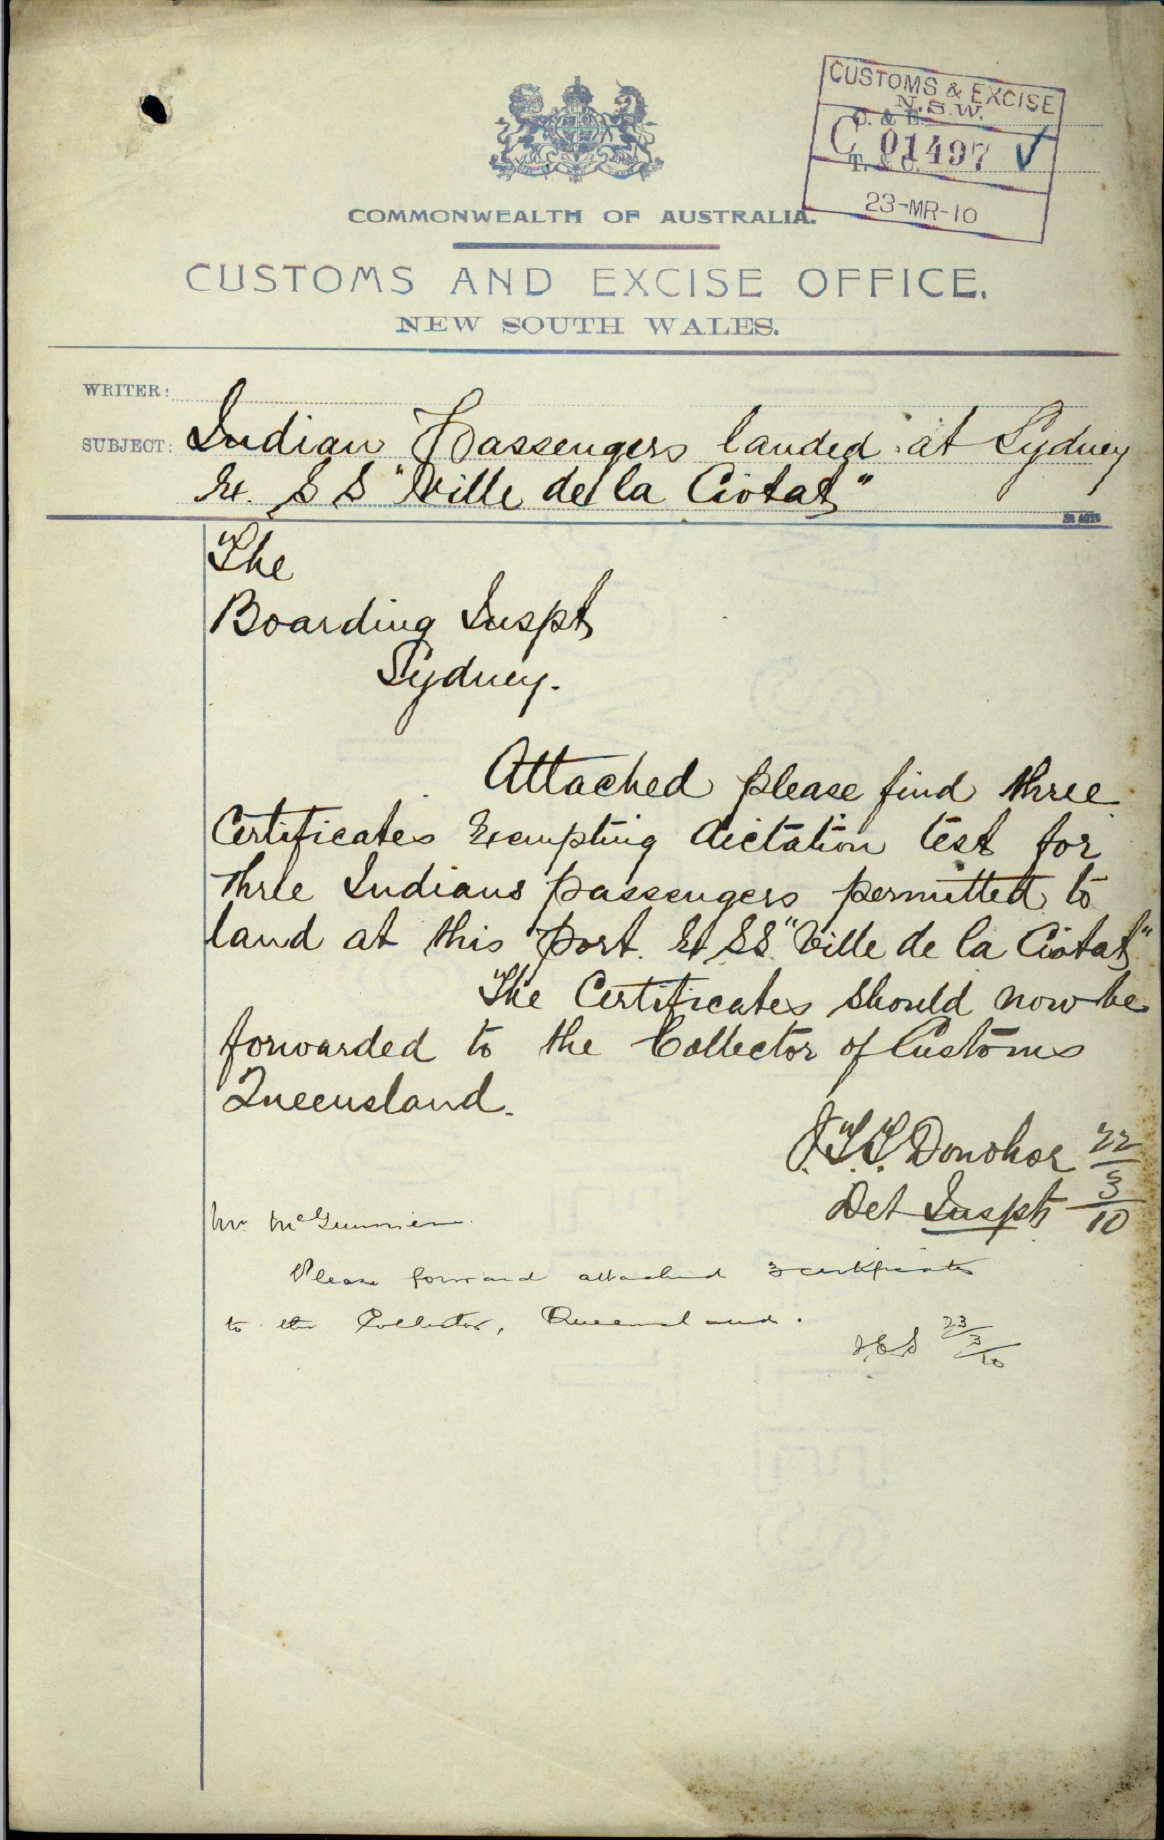 CUSTOMS & EXCISE
N.S.W.
C. & E.
C 01497 ✓
T. & C.
23-MR-10
COMMONWEALTH OF AUSTRALIA.
CUSTOMS AND EXCISE OFFICE.
NEW SOUTH WALES.
WRITER:
SUBJECT: Indian Passengers landed at Sydney
Ex. S S "Ville de la Ciotat"
The
Boarding Inspt
Sydney.
Attached please find three
Certificates Exempting dictation test for
three Indians passengers permitted to
land at this port. Ex SS. "Ville de la Ciotat"
The Certificates should now be
forwarded to the Collector of Customs
Queensland.
J.T.T. Donohoe 22/3/10
Det Inspt
Mr.
Please forward attached 3 certificates
to the Collector, Queensland.
23/3/10